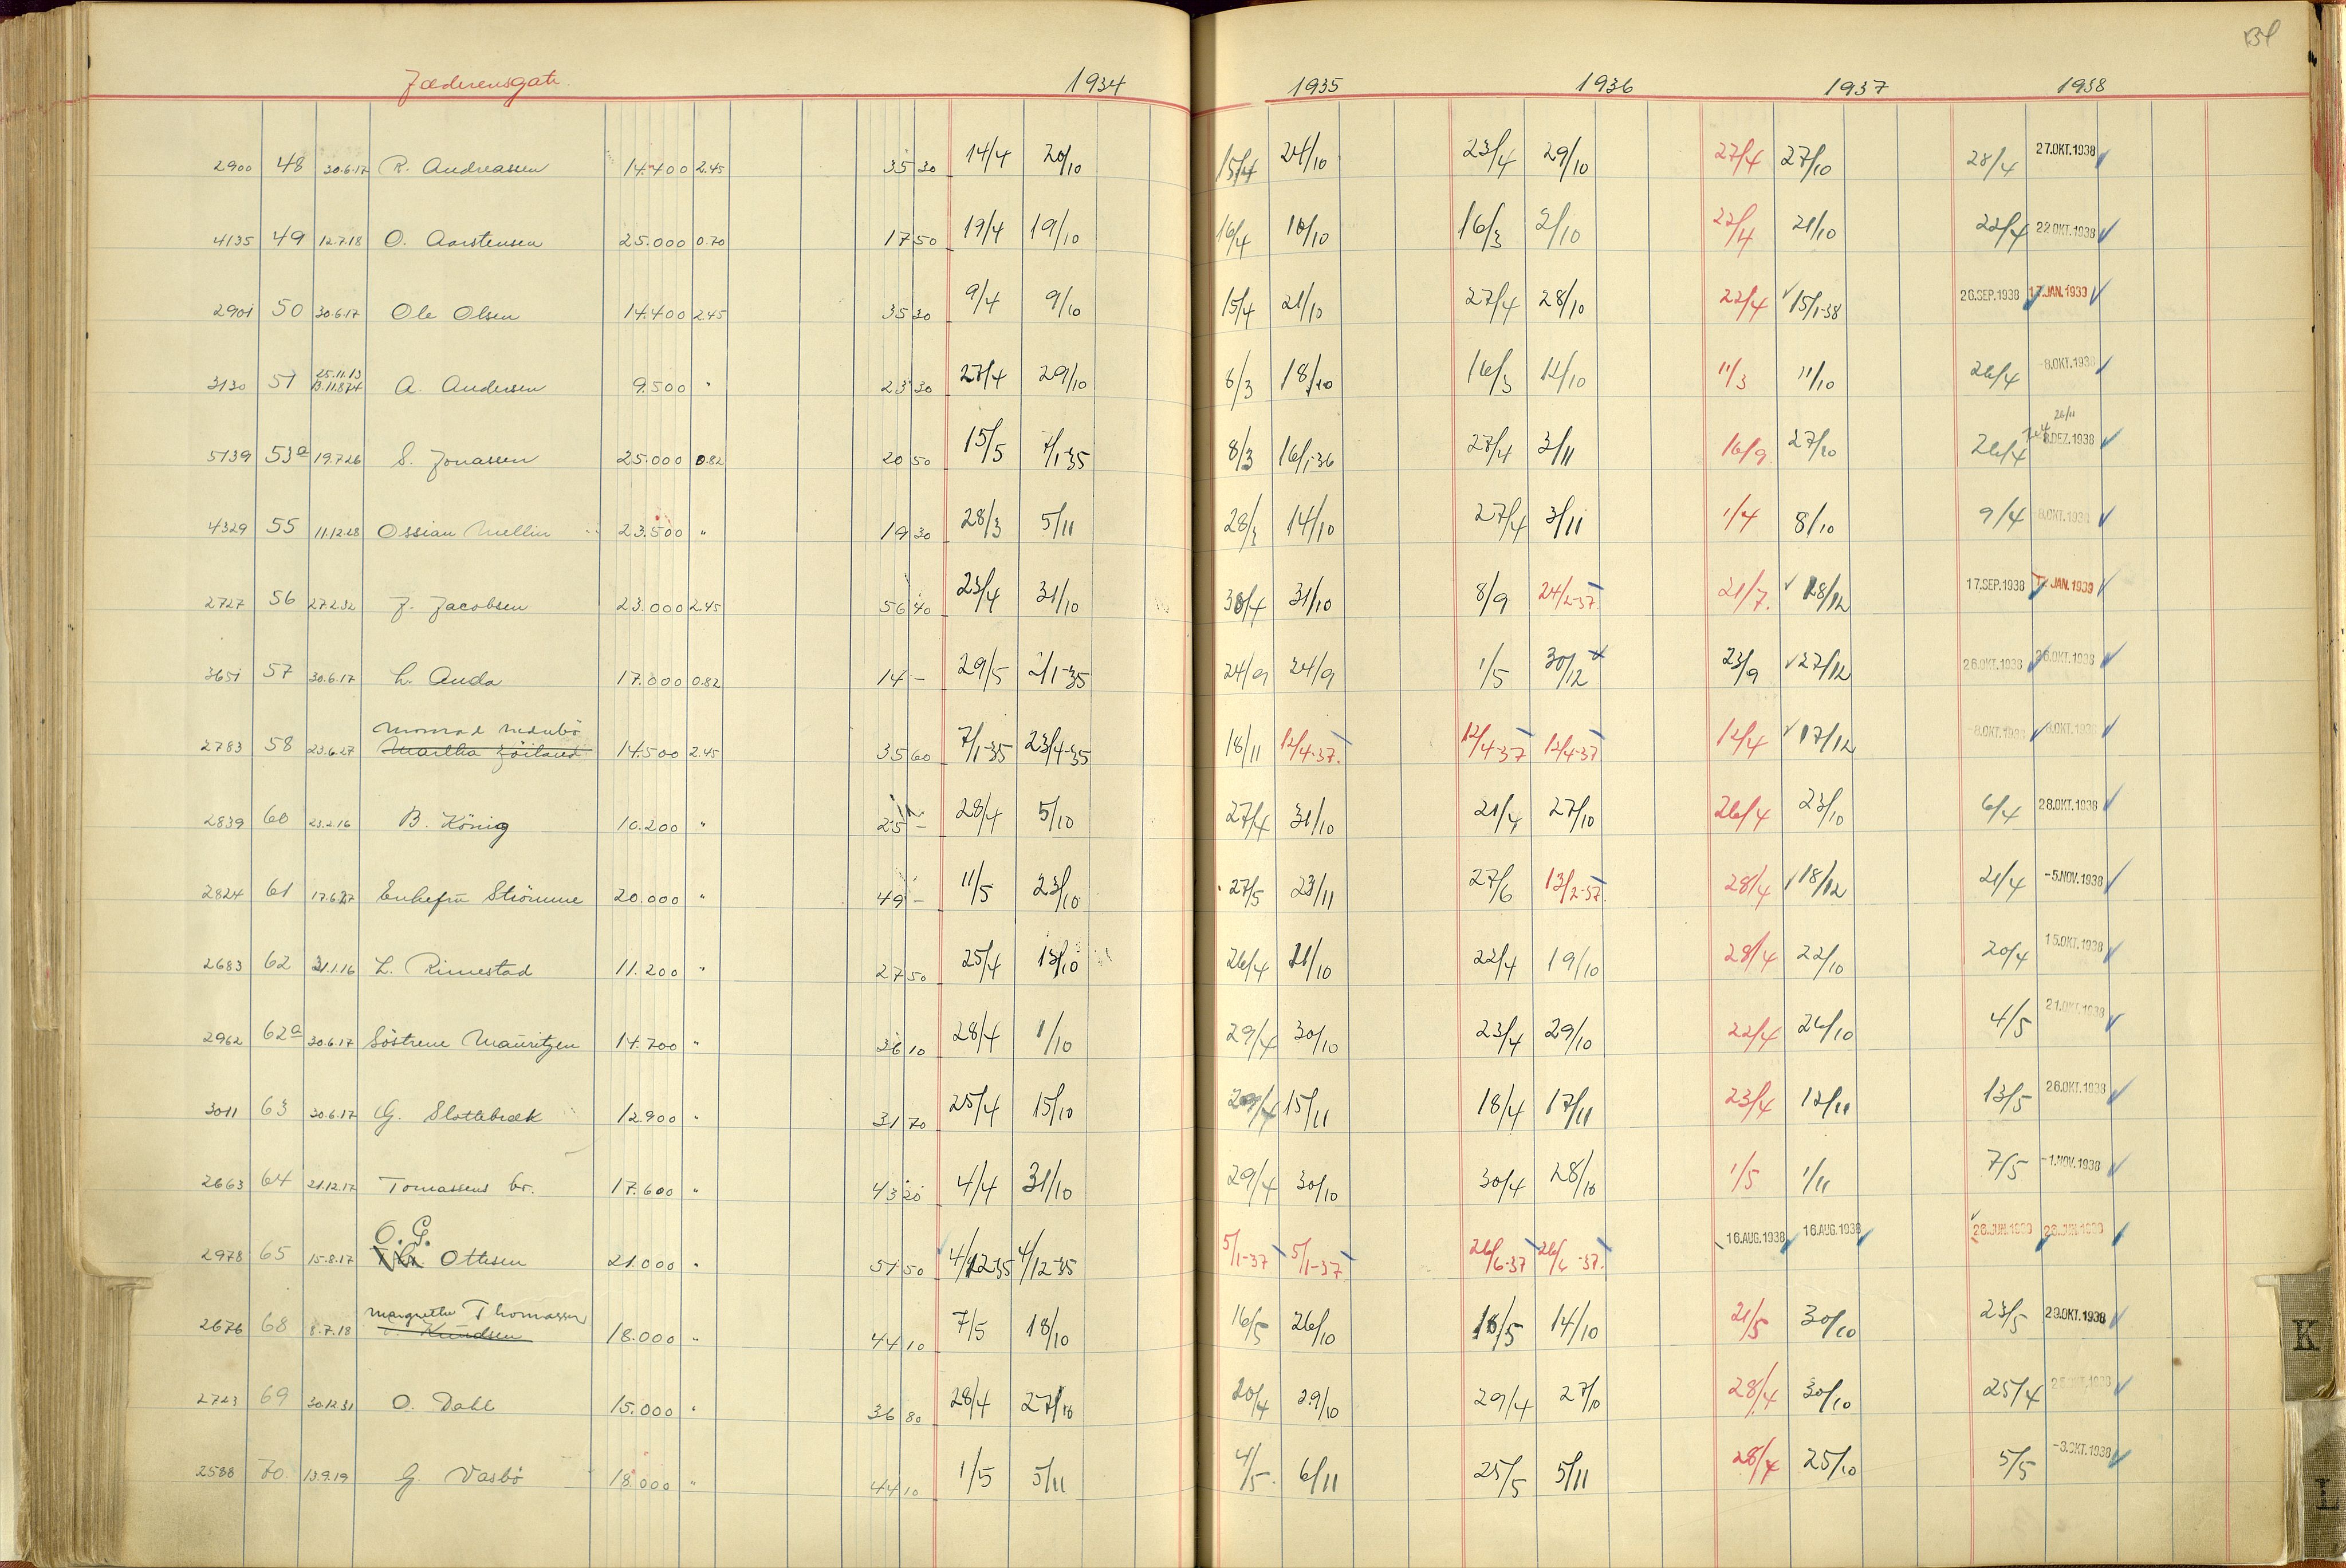 Jæderensgate 1934 1935 1936 1937 1938
2900 48 30.6.17 R. Andreassen 14.400 2.45 35 30 14/4 20/10 15/4 24/10 23/4 29/10 27/4 27/10 28/4 27.OKT.1938
4135 49 12.7.18 O. Aarstensen 25.000 0.70 17 50 19/4 19/10 16/4 10/10 16/3 2/10 22/4 21/10 22/4 22.OKT.1938
2901 50 30.6.17 Ole Olsen 14.400 2.45 35 30 9/4 9/10 15/4 21/10 27/4 28/10 22/4 15/1-38 26.SEP.1938 17.JAN.1939
25.11.13
3130 51 B.11.874 A. Andersen 9.500 " 23 30 27/4 29/10 8/3 18/10 16/3 12/10 11/3 11/10 26/4 -8.OKT.1938
26/11
5139 53a 19.7.26 S. Jonassen 25.000 0.82 20 50 15/5 7/1-35 8/3 16/1-36 27/4 3/11 16/9 27/10 26/4 8.DEZ.1938
4329 55 11.12.28 Ossian Mellin 23.500 " 19 30 28/3 5/11 28/3 14/10 27/4 3/11 1/4 8/10 9/4 -8.OKT.1938
2727 56 27.2.32 J. Jacobsen 23.000 2.45 56 40 23/4 31/10 30/4 31/10 8/9 24/2-37 21/7 28/12 17.SEP.1938 JAN.1939
3651 57 30.6.17 L. Auda 17.000 0.82 14 - 29/5 2/1-35 24/9 24/9 1/5 30/12 23/9 27/12 26.OKT.1938 26.OKT.1938
2783 58 23.6.27 Martha 14.500 2.45 35 60 7/1-35 23/4-35 18/11 12/4-37 12/4-37 12/4-37 12/4 17/12 -8.OKT.1938 -8.OKT.1938
2839 60 23.2.16 B. König 10.200 " 25 - 28/4 5/10 27/4 31/10 21/4 27/10 26/4 23/10 6/4 28.OKT.1938
2824 61 17.6.27 Enkefru Strömme 20.000 " 49 - 11/5 23/10 27/5 23/11 27/6 13/2-37 28/4 18/12 21/4 -5.NOV.1938
2683 62 31.1.16 L. Rimestad 11.200 " 27 50 25/4 13/10 26/4 21/10 22/4 19/10 28/4 22/10 20/4 15.OKT.1938
2962 62a 30.6.17 Söstrene Mauritzen 14.700 " 36 10 28/4 1/10 29/4 30/10 23/4 29/10 22/4 26/10 4/5 21.OKT.1938
3011 63 30.6.17 G. Slottebræk 12.900 " 31 70 25/4 15/10 29/4 15/11 18/4 17/11 23/4 12/11 13/5 26.OKT.1938
2663 64 21.12.17 Tomassens br. 17.600 " 43 20 4/4 31/10 29/4 30/10 30/4 28/10 1/5 1/11 7/5 -1.NOV.1938
O. G.
2978 65 15.8.17 Ottesen 21.000 " 51 50 4/12-35 4/12-35 5/1-37 5/1-37 26/6-37 26/6-37 16.AUG.1938 16.AUG.1938 26.JUN.1939 26.JUN.1939
Margrethe Thomassen
2676 68 8.7.18 Knudsen 18.000 " 44 10 7/5 18/10 16/5 26/10 18/5 14/10 21/5 30/10 23/5 29.OKT.1938
2723 69 30.12.31 O. Dahl 15.000 " 36 80 28/4 27/10 20/4 29/10 29/4 27/10 28/4 30/10 25/4
2588 70 13.9.19 G. Vasbö 18.000 " 44 10 1/5 5/11 4/5 6/11 25/5 5/11 28/4 25/10 5/5 -3.OKT.1938
K
L